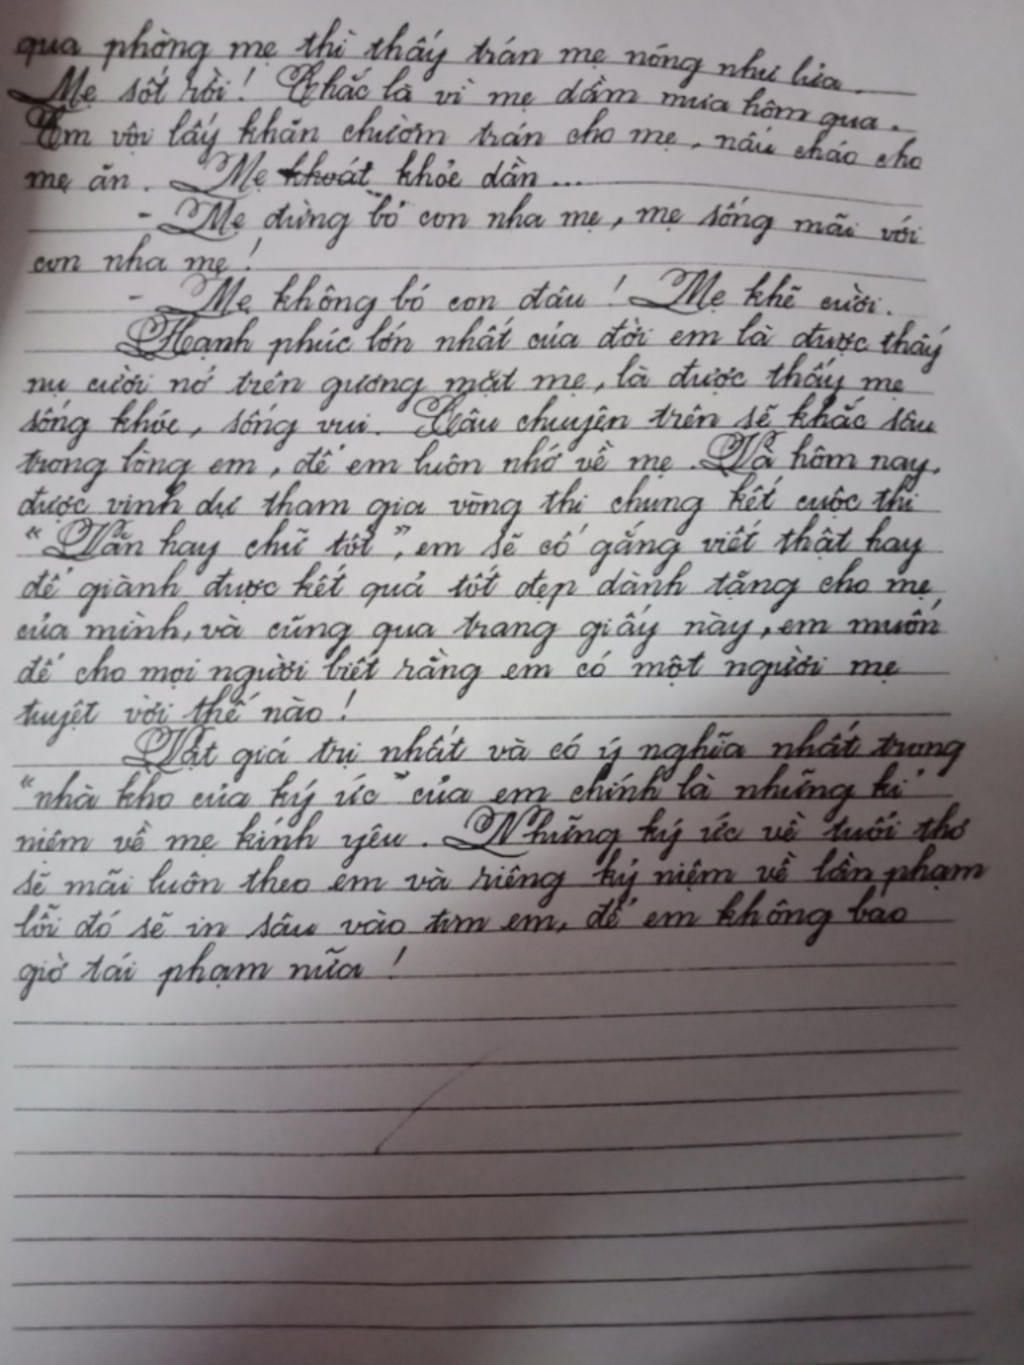 qua phòng mẹ thì thấy trán mẹ nóng như lửa.
Mẹ sốt rồi! Chắc là vì mẹ dầm mưa hôm qua.
Em vội lấy khăn chườm trán cho mẹ, nấu cháo cho
mẹ ăn. Mẹ khoát khỏe dần...
- Mẹ đừng bỏ con nha mẹ, mẹ sống mãi với
con nha mẹ!
- Mẹ không bỏ con đâu! Mẹ khẽ cười.
Hạnh phúc lớn nhất của đời em là được thấy
nụ cười nở trên gương mặt mẹ, là được thấy mẹ
sống khỏe, sống vui. Câu chuyện trên sẽ khắc sâu
trong lòng em, để em luôn nhớ về mẹ. Và hôm nay,
được vinh dự tham gia vòng thi chung kết cuộc thi
"Văn hay chữ tốt", em sẽ cố gắng viết thật hay
để giành được kết quả tốt đẹp dành tặng cho mẹ
của mình, và cũng qua trang giấy này, em muốn
để cho mọi người biết rằng em có một người mẹ
tuyệt vời thế nào!
Vật giá trị nhất và có ý nghĩa nhất trong
"nhà kho của ký ức" của em chính là những kỉ
niệm về mẹ kính yêu. Những ký ức về tuổi thơ
sẽ mãi luôn theo em và riêng ký niệm về lần phạm
lỗi đó sẽ in sâu vào tim em, để em không bao
giờ tái phạm nữa!